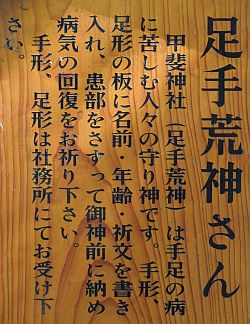 足手荒神さん
甲斐神社（足手荒神）は手足の病
に苦しむ人々の守り神です。手形、
足形の板に名前・年齢・祈文を書き
入れ、患部をさすって御神前に納め
病気の回復をお祈り下さい。
手形、足形は社務所にてお受け下
さい。